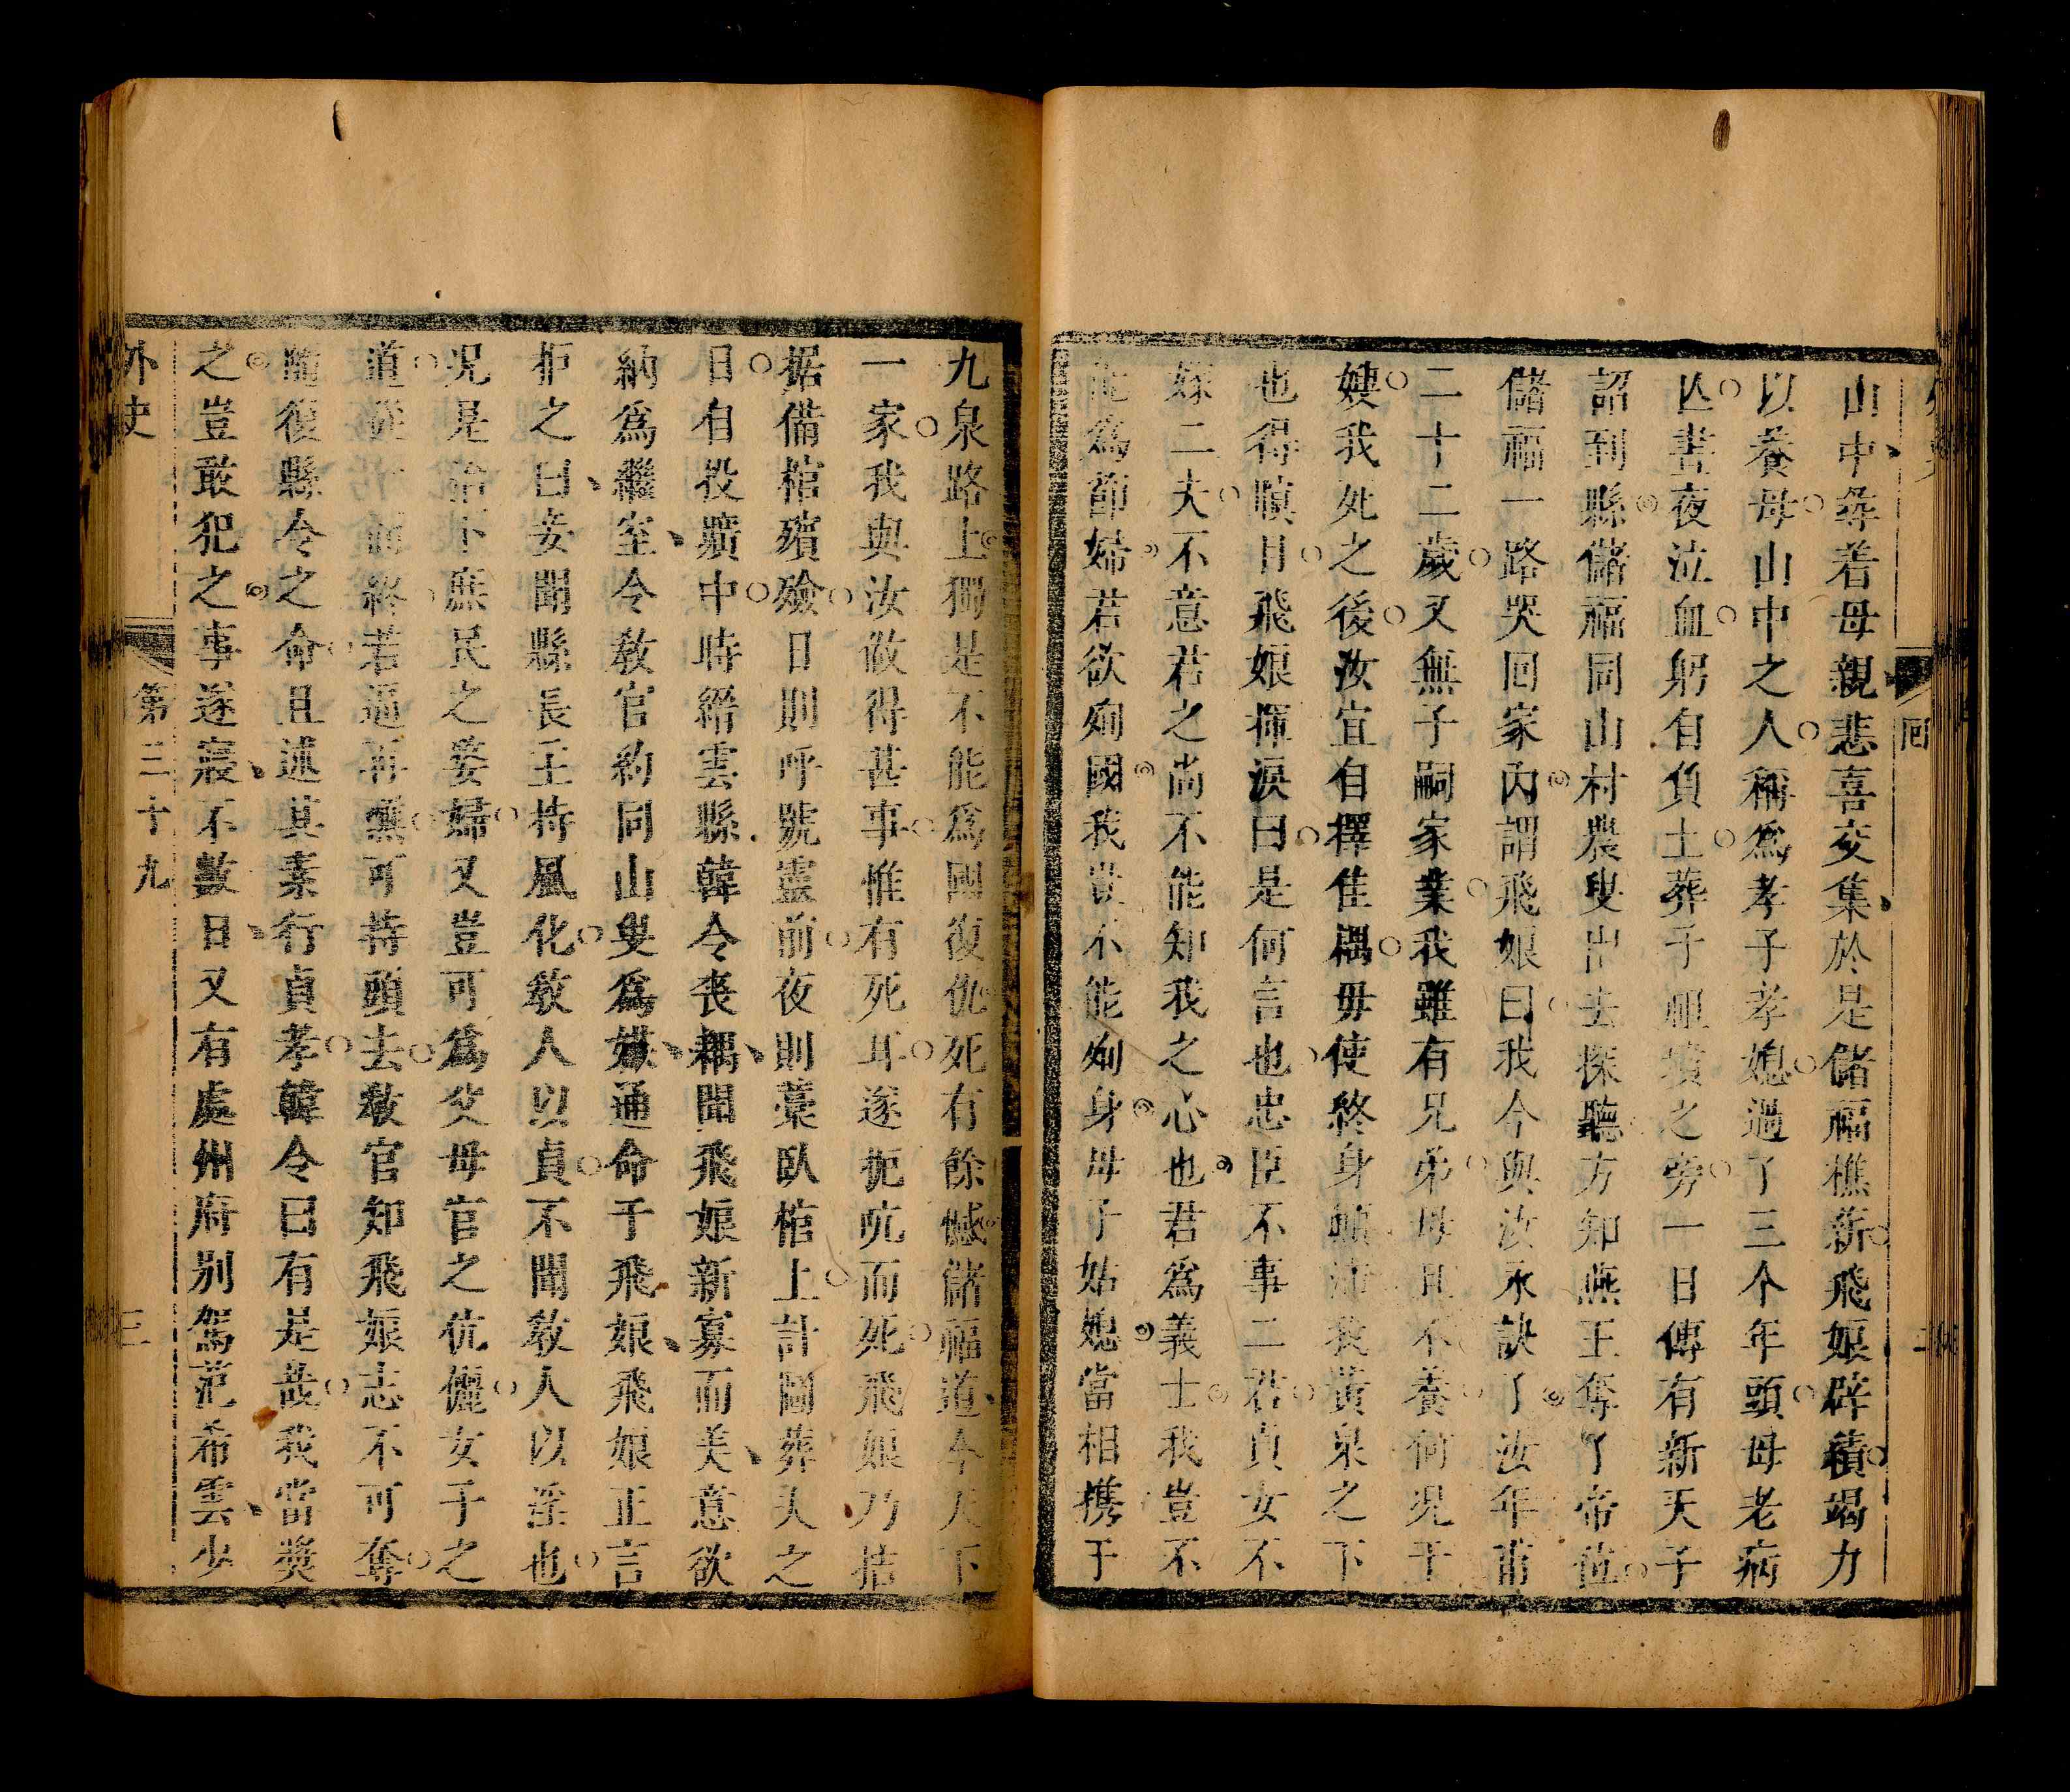 山中尋着母親悲喜交集於是儲福樵薪飛娘辟績竭力
以養母山中之人稱爲孝子孝媳過了三个年頭母老病
亾晝夜泣血躬自負土葬于祖墳之旁一日傳有新天子
詔到縣儲福同山村農叟出去探聽方知燕王奪了帝位
儲福一路哭回家內謂飛娘曰我今與汝永訣了汝年甫
二十二歲又無子嗣家業我雖有兄弟母且不養何況于
嫂我死之後汝宜自擇佳耦毋使終身顛沛我黃泉之下
也得瞑目飛娘揮淚曰是何言也忠臣不事二君貞女不
嫁二夫不意君之尚不能知我之心也君爲義士我豈不
能爲節婦君欲殉國我豈不能殉身母子姑媳當相携于
九泉路上獨是不能爲國復仇死有餘憾儲福道今天下
一家我與汝做得甚事惟有死耳遂扼吭而死飛娘乃拮
据備棺殯殮日則呼號靈前夜則藁臥棺上計圖葬夫之
日自投壙中時縉雲縣韓令喪耦聞飛娘新寡而美意欲
納爲繼室令教官約同山叟爲媒通命于飛娘飛娘正言
拒之曰妾聞縣長主持風化教人以貞不聞教人以淫也
况是治下庶民之妾婦又豈可爲父母官之伉儷女子之
道從一而終若逼再醮可持頭去教官知飛娘志不可奪
隨復縣令之命且述其素行貞孝韓令曰有是哉我當獎
之豈敢犯之事遂寢不數日又有處州府别駕范希雲少
外史
第三十九
三
回